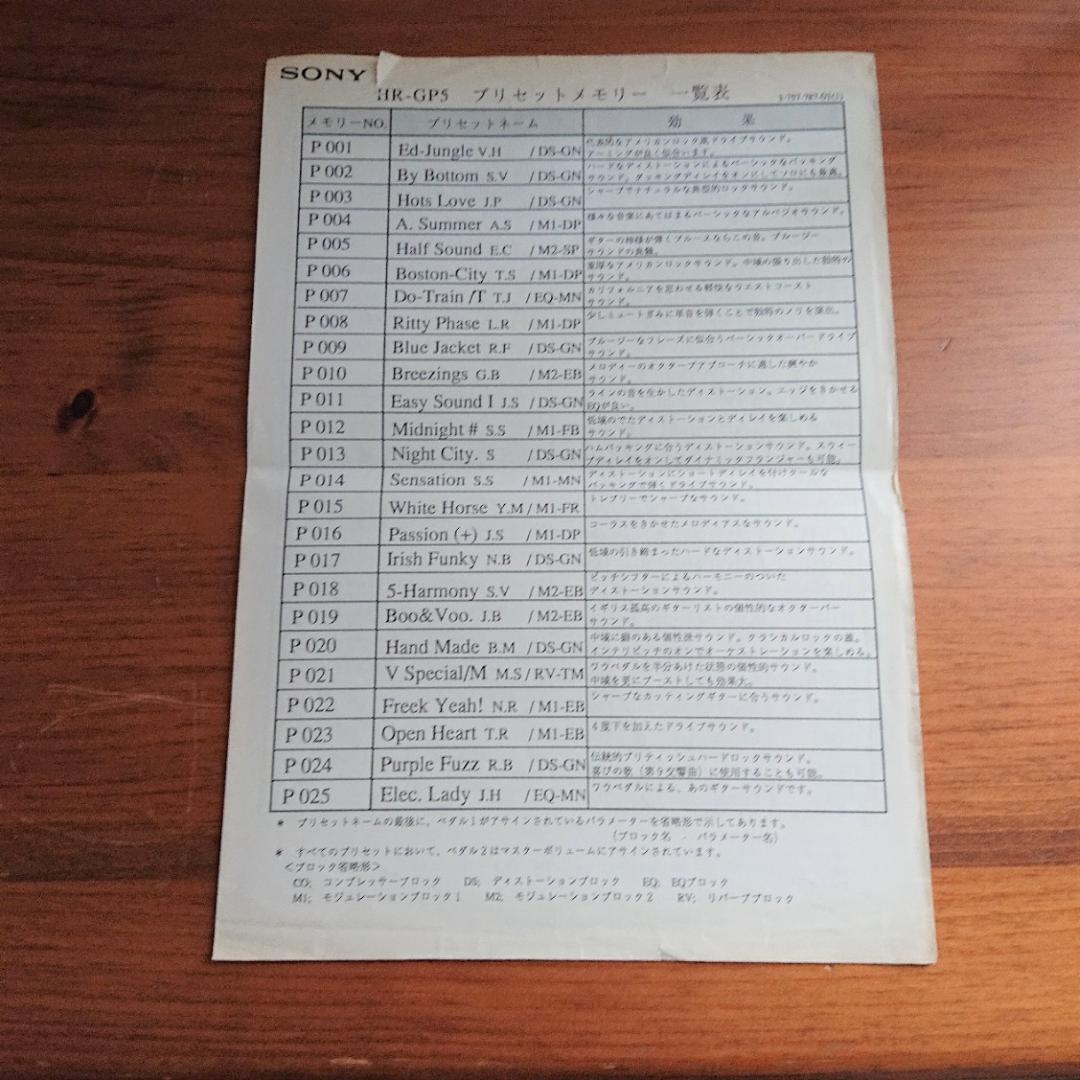 SONY
HR-GP5 プリセットメモリー 一覧表
メモリーNO. プリセットネーム 効 果
P 001 Ed-Jungle V.H /DS-GN 代表的なアメリカンロック風ドライブサウンド。
アーミングが良く似合います。
P 002 By Bottom S.V /DS-GN ハードなディストーションによるベーシックなバッキング
サウンド。ダッキングディレイをオンにしてソロにも最高。
P 003 Hots Love J.P /DS-GN シャープでナチュラルな典型的ロックサウンド。
P 004 A. Summer A.S /M1-DP 様々な音楽にあてはまるベーシックなアルペジオサウンド。
P 005 Half Sound E.C /M2-SP ギターの神様が弾くブルースならこの音。ブルージー
サウンドの真髄。
P 006 Boston-City T.S /M1-DP 重厚なアメリカンロックサウンド。中域の張り出した独特の
サウンド。
P 007 Do-Train /T T.J /EQ-MN カリフォルニアを思わせる軽快なウエストコースト
サウンド。
P 008 Ritty Phase L.R /M1-DP 少しミュートぎみに単音を弾くことで独特のノリを演出。
P 009 Blue Jacket R.F /DS-GN ブルージーなフレーズに似合うベーシックオーバードライブ
サウンド。
P 010 Breezings G.B /M2-EB メロディーのオクターブアプローチに適した爽やか
サウンド。
P 011 Easy Sound I J.S /DS-GN ラインの音を生かしたディストーション。エッジをきかせる
EQが良い。
P 012 Midnight # S.S /M1-FB 低域のでたディストーションとディレイを楽しめる
サウンド。
P 013 Night City. S /DS-GN ハムバッキングに合うディストーションサウンド。スウィー
プディレイをオンしてダイナミックフランジャーも可能。
P 014 Sensation S.S /M1-MN ディストーションにショートディレイを付けクールな
バッキングで弾くドライブサウンド。
P 015 White Horse Y.M /M1-FR トレブリーでシャープなサウンド。
P 016 Passion (+) J.S /M1-DP コーラスをきかせたメロディアスなサウンド。
P 017 Irish Funky N.B /DS-GN 低域の引き締まったハードなディストーションサウンド。
P 018 5-Harmony S.V /M2-EB ピッチシフターによるハーモニーのついた
ディストーションサウンド。
P 019 Boo&Voo. J.B /M2-EB イギリス孤高のギターリストの個性的なオクターバー
サウンド。
P 020 Hand Made B.M /DS-GN 中域に癖のある個性派サウンド。クラシカルロックの
インテリピッチのオンでオーケストレーションを楽しめる。
P 021 V Special/M M.S /RV-TM ワウペダルを半分あけた状態の個性的サウンド。
中域を更にブーストしても効果大。
P 022 Freek Yeah! N.R /M1-EB シャープなカッティングギターに合うサウンド。
P 023 Open Heart T.R /M1-EB 4度下を加えたドライブサウンド。
P 024 Purple Fuzz R.B /DS-GN 伝統的ブリティッシュハードロックサウンド。
喜びの歌(第9交響曲)に使用することも可能。
P 025 Elec. Lady J.H /EQ-MN ワウペダルによる、あのギターサウンドです。
* プリセットネームの最後に、ペダル1がアサインされているパラメーターを省略形で示してあります。
(ブロック名 - パラメーター名)
* すべてのプリセットにおいて、ペダル2はマスターボリュームにアサインされています。
<ブロック省略形>
CO; コンプレッサーブロック DS; ディストーションブロック EQ; EQブロック
M1; モジュレーションブロック1 M2; モジュレーションブロック2 RV; リバーブブロック